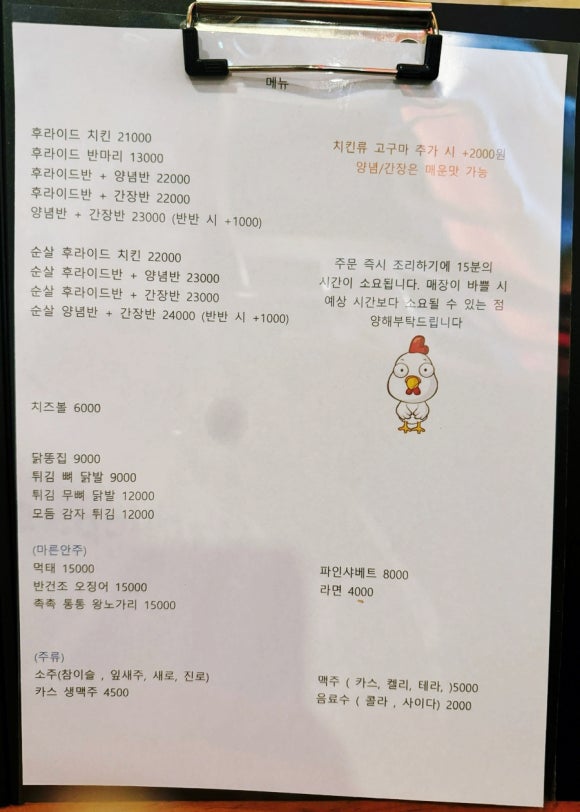 메뉴
후라이드 치킨 21000
후라이드 반마리 13000
후라이드반 + 양념반 22000
후라이드반 + 간장반 22000
양념반 + 간장반 23000 (반반 시 +1000)
치킨류 고구마 추가 시 +2000원
양념/간장은 매운맛 가능
순살 후라이드 치킨 22000
순살 후라이드반 + 양념반 23000
순살 후라이드반 + 간장반 23000
순살 양념반 + 간장반 24000 (반반 시 +1000)
주문 즉시 조리하기에 15분의
시간이 소요됩니다. 매장이 바쁠 시
예상 시간보다 소요될 수 있는 점
양해부탁드립니다
치즈볼 6000
닭똥집 9000
튀김 뼈 닭발 9000
튀김 무뼈 닭발 12000
모듬 감자 튀김 12000
(마른안주)
먹태 15000
반건조 오징어 15000
촉촉 통통 왕노가리 15000
파인샤베트 8000
라면 4000
(주류)
소주(참이슬 , 잎새주, 새로, 진로)
카스 생맥주 4500
맥주 ( 카스, 켈리, 테라, )5000
음료수 ( 콜라 , 사이다) 2000